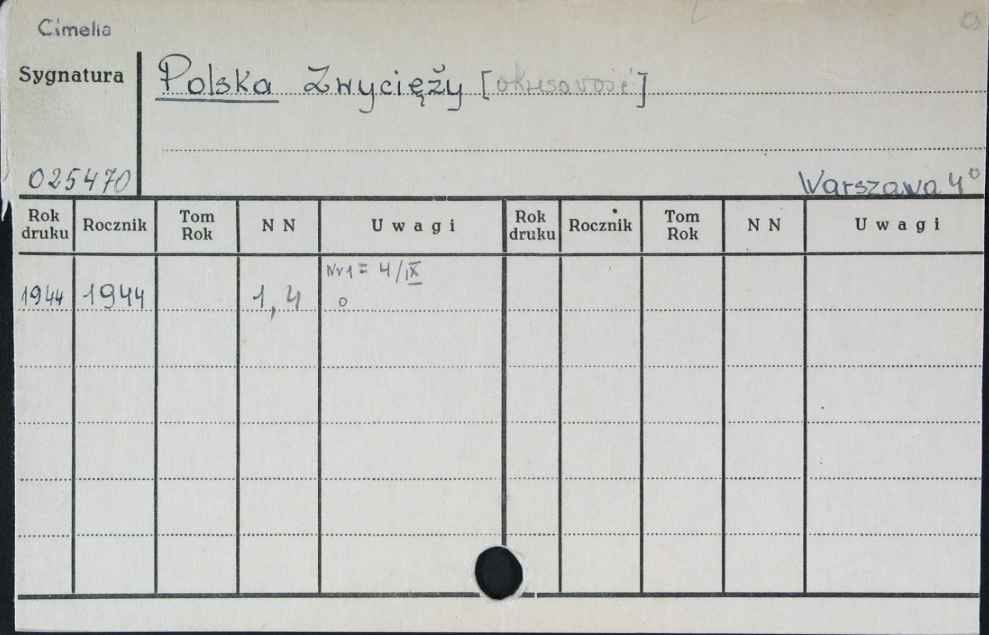 Cimelia
Sygnatura
Polska Zwycięży [okresowość]
025470
Warszawa 4°
Rok druku Rocznik Tom Rok N N Uwagi Rok druku Rocznik Tom Rok N N Uwagi
Nr 1 = 4/IX
1944 1944 1, 4 o